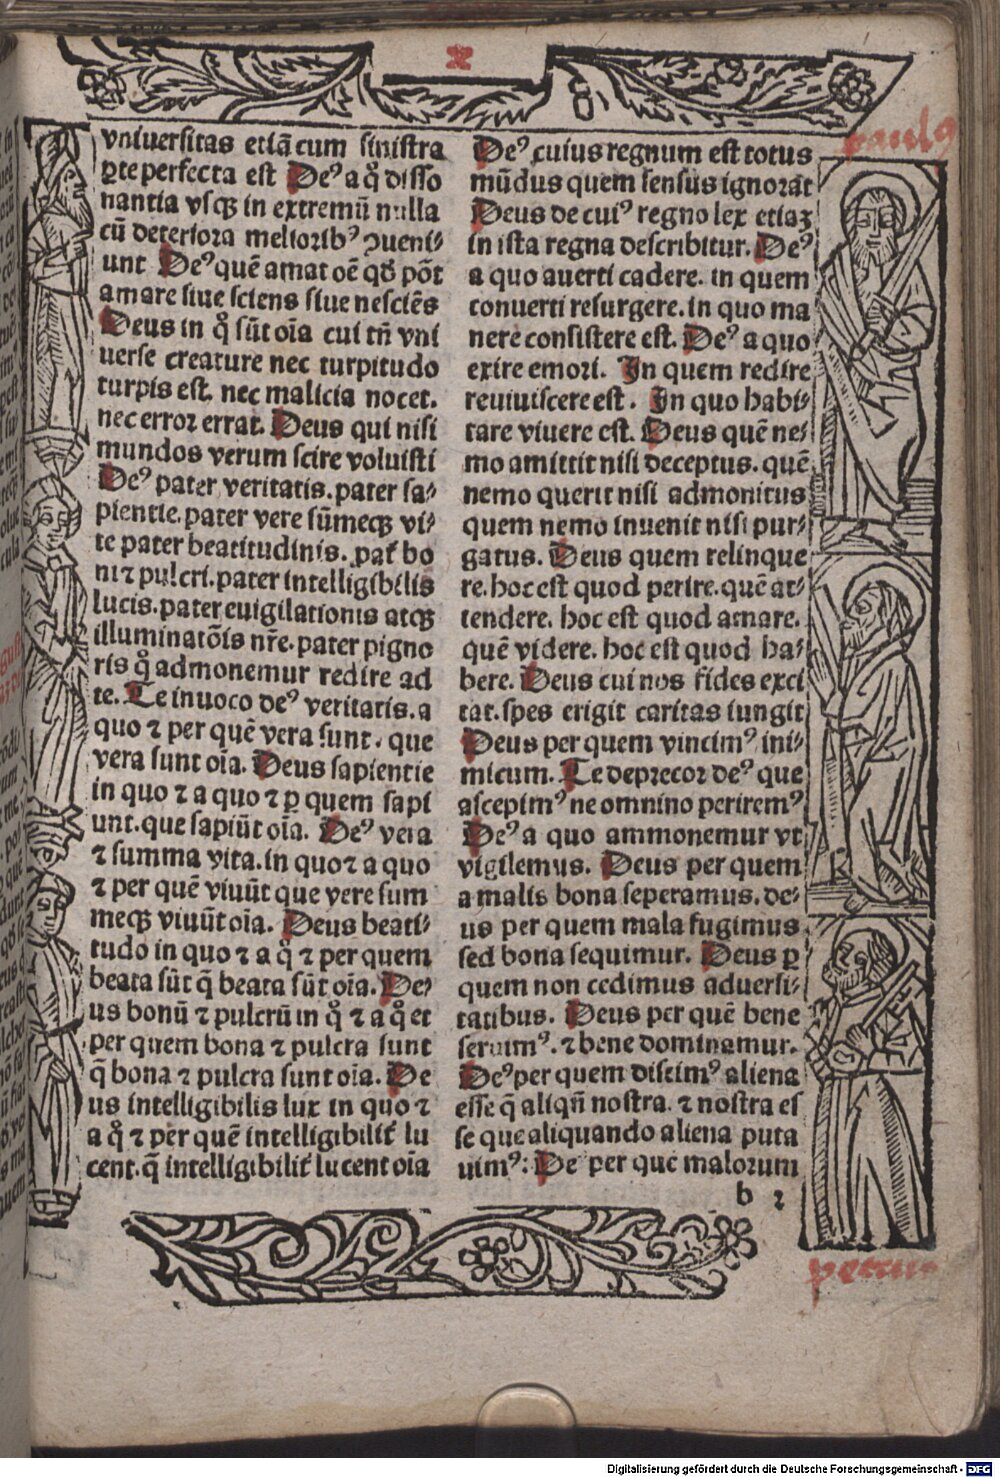 x
paulꝰ
vniuersitas etiā cum sinistra
ꝑte perfecta est Deꝰ a q̊ disso
nantia vsqꝫ in extremū nulla
cū deteriora melioribꝰ ꝯueni⸗
unt Deꝰ quē amat oē qđ pōt
amare siue sciens siue nesciēs
Deus in q̊ sūt oīa cui tñ vni
uerse creature nec turpitudo
turpis est. nec malicia nocet.
nec error errat. Deus qui nisi
mundos verum scire voluisti
Deꝰ pater veritatis. pater sa⸗
pientie. pater vere sūmeqꝫ vi⸗
te pater beatitudinis. pat̄ bo
ni ⁊ pulcri. pater intelligibilis
lucis. pater euigilationis atqꝫ
illuminatōis nr̄e. pater pigno
ris q̊ admonemur redire ad
te. Te inuoco deꝰ veritatis. a
quo ⁊ per quē vera sunt. que
vera sunt oīa. Deus sapientie
in quo ⁊ a quo ⁊ ꝑ quem sapi
unt. que sapiūt oīa. Deꝰ vera
⁊ summa vita. in quo ⁊ a quo
⁊ per quē viuūt que vere sum
meqꝫ viuūt oīa. Deus beati⸗
tudo in quo ⁊ a q̊ ⁊ per quem
beata sūt q̄ beata sūt oīa. De⸗
us bonū ⁊ pulcrū in q̊ ⁊ a q̊ et
per quem bona ⁊ pulcra sunt
q̄ bona ⁊ pulcra sunt oīa. De
us intelligibilis lux in quo ⁊
a q̊ ⁊ per quē intelligibilit̄ lu
cent. q̄ intelligibilit̄ lucent oīa
Deꝰ cuius regnum est totus
mūdus quem sensus ignorāt
Deus de cuiꝰ regno lex etiaꝫ
in ista regna describitur. Deꝰ
a quo auerti cadere. in quem
conuerti resurgere. in quo ma
nere consistere est. Deꝰ a quo
exire emori. In quem redire
reuiuiscere est. In quo habi⸗
tare viuere est. Deus quē ne⸗
mo amittit nisi deceptus. quē
nemo querit nisi admonitus
quem nemo inuenit nisi pur⸗
gatus. Deus quem relinque
re. hoc est quod perire. quē at⸗
tendere. hoc est quod amare.
quē videre. hoc est quod ha⸗
bere. Deus cui nos fides exci
tat. spes erigit caritas iungit
Deus per quem vincimꝰ ini⸗
micum. Te deprecor deꝰ que
ascepimꝰ ne omnino periremꝰ
Deꝰ a quo ammonemur vt
vigilemus. Deus per quem
a malis bona seperamus. de⸗
us per quem mala fugimus
sed bona sequimur. Deus ꝑ
quem non cedimus aduersi⸗
tatibus. Deus per quē bene
seruimꝰ. ⁊ bene dominamur.
Deꝰ per quem discimꝰ aliena
esse q̄ aliqñ nostra. ⁊ nostra es
se que aliquando aliena puta
uimꝰ: De per que malorum
b 2
petrus
Digitalisierung gefördert durch die Deutsche Forschungsgemeinschaft - DFG